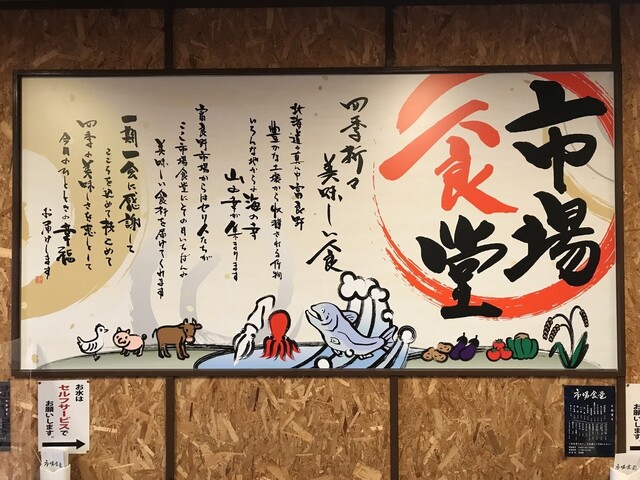 市場
食堂
四季折々
美味しい食
北海道の真ん中富良野
豊かな土壌から収穫される作物
いろんな地からの海の幸
山の幸が集まります
富良野市場からはセリ人たちが
ここ市場食堂にその日いちばんの
美味しい食材を届けてくれます
一期一会に感謝して
こころを込めて
四季の美味しさを恋して
今日のひとときの幸福
お届けします
お水は
セルフサービスで
お願いします。
市場食堂
市場食堂
市場食堂
します。